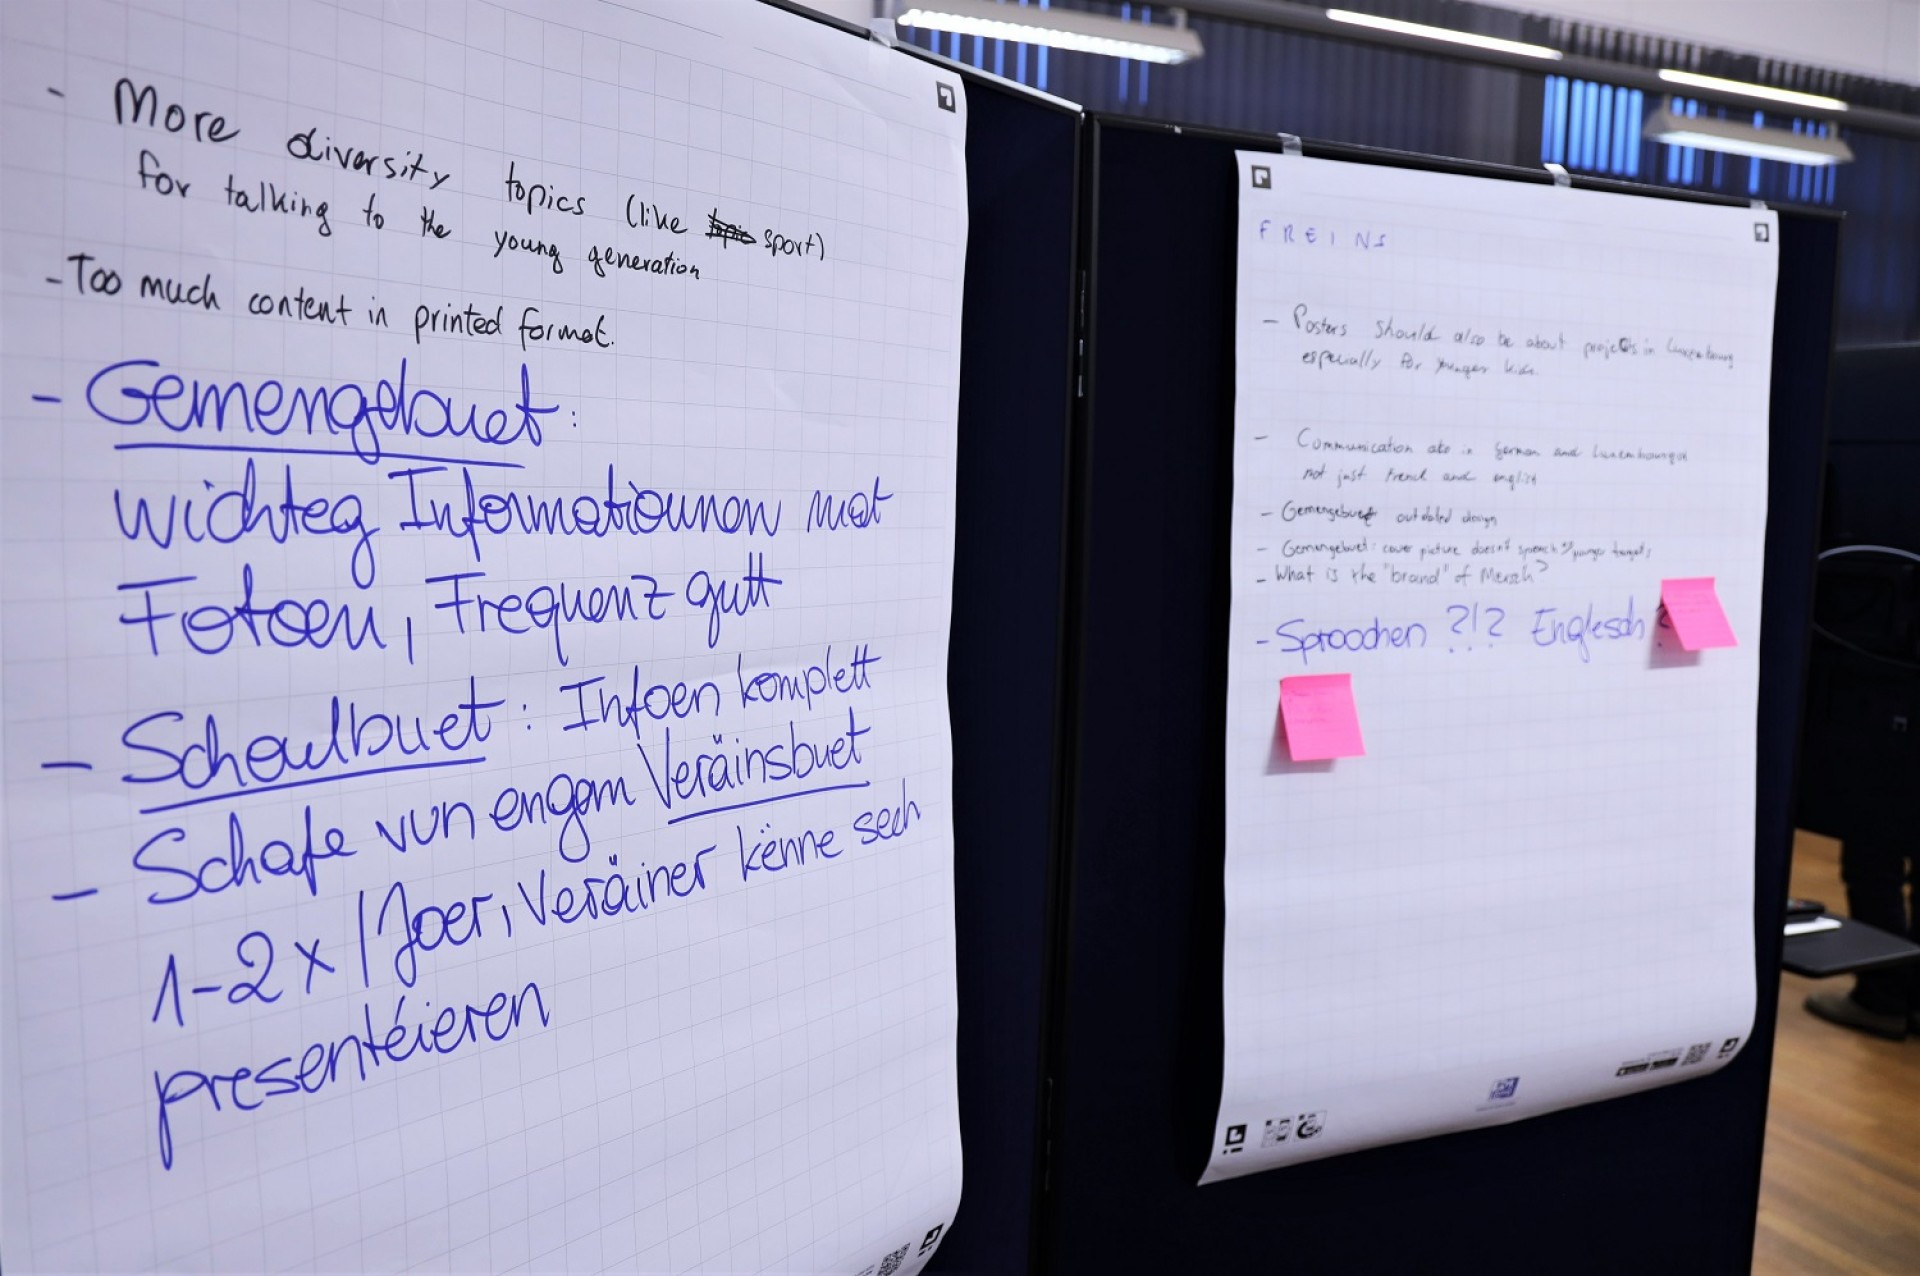 - More diversity topics (like sport)
for talking to the young generation
- Too much content in printed format.
- Gemengebuet:
wichteg Informatiounen mat
Fotoen, Frequenz gutt
- Schoulbuet: Infoen komplett
- Schafe vun engem Veräinsbuet
1-2 x / Joer, Veräiner kënne sech
presentéieren
FREINS
- Posters should also be about projects in Luxembourg
especially for younger kids.
- Communication also in German and Luxembourgish
not just French and english
- Gemengebuet outdated design
- Gemengebuet: cover picture doesn't speach younger targets
- What is the "brand" of Mersch?
- Sproochen ?!? Englesch ?